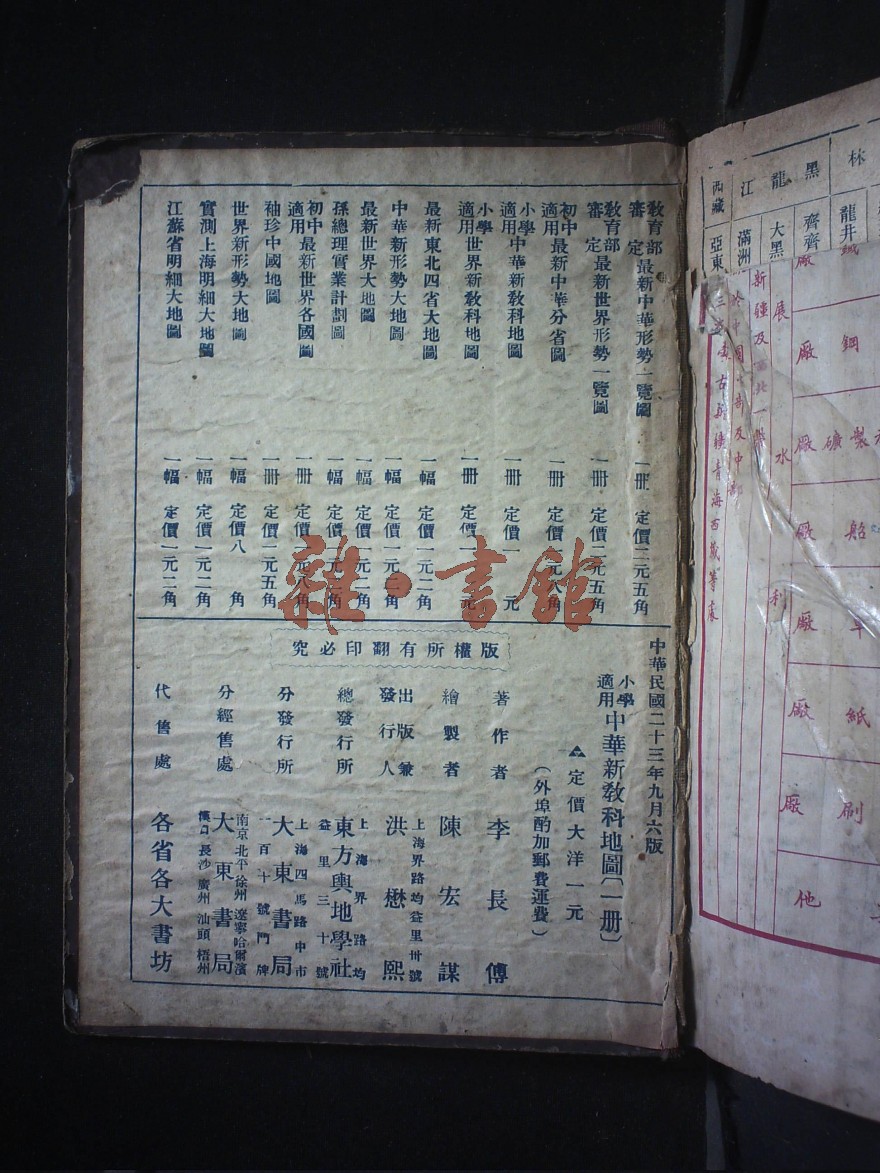 教育部審定 最新中華形勢一覽圖 一册 定價二元五角
教育部審定 最新世界形勢一覽圖 一册 定價二元五角
初中適用 最新中華分省圖 一册 定價一元八角
小學適用 中華新教科地圖 一册 定價一元
小學適用 世界新教科地圖 一册 定價一元
最新東北四省大地圖 一幅 定價一元二角
中華新形勢大地圖 一幅 定價
最新世界大地圖 一幅 定價
孫總理實業計劃圖 一幅 定價
初中適用 最新世界各國圖 一册 定價
袖珍中國地圖 一册 定價一元五角
世界新形勢大地圖 一幅 定價八角
實測上海明細大地圖 一幅 定價一元二角
江蘇省明細大地圖 一幅 定價一元二角
中華民國二十三年九月六版
小學適用 中華新教科地圖〔一册〕
定價大洋一元
（外埠酌加郵費運費）
版權所有翻印必究
著作者 李長傅
繪製者 陳宏謀
出版兼發行人 上海界路均益里卅號 洪懋熙
總發行所 上海界路均益里三十號 東方輿地學社
分發行所 上海四馬路中市一百十號門牌 大東書局
分經售處 南京北平徐州遼寧哈爾濱漢口長沙廣州汕頭梧州 大東書局
代售處 各省各大書坊
雜·書館
林
龍井
黑龍江
齊齊
大黑
滿洲
西藏
亞東
鋼
製
船
紙
刷
廠
廠
礦廠
廠
廠
廠
廠
他
展
水
利
新疆及
青海西藏等處